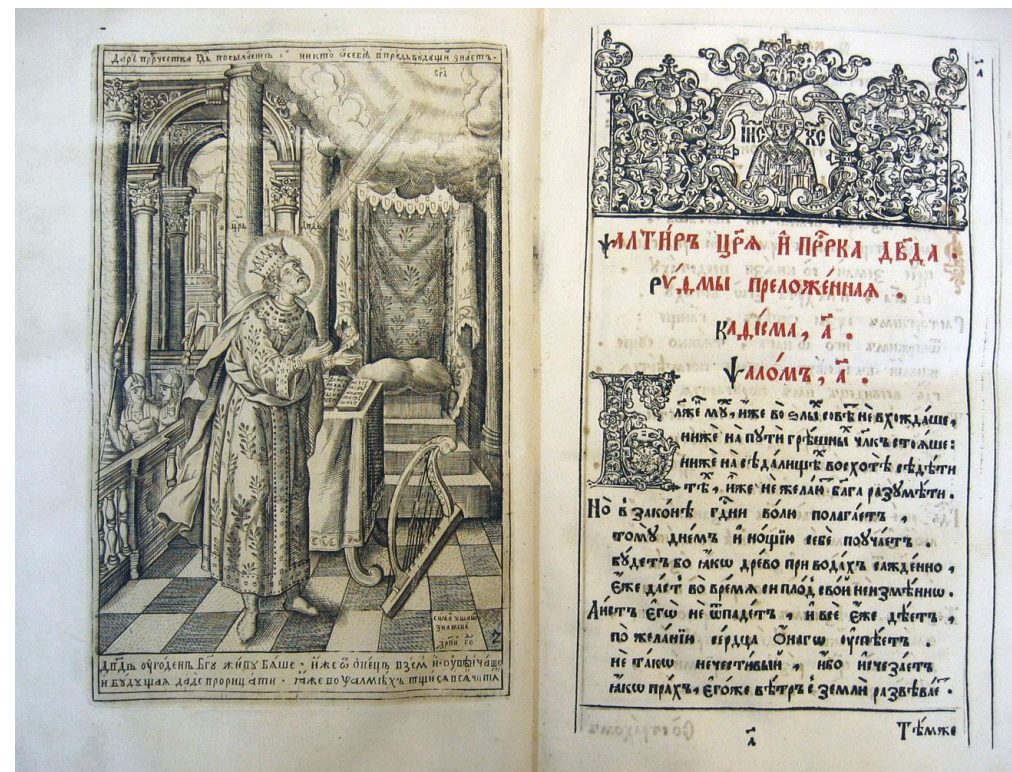 Даръ прⷪ҇рчества Гдⷭ҇ь посылаетъ · никто ѿ себѣ впредьбꙋдꙋщи знаетъ ·
бг҃ъ
цр҃ь
дв҃дъ
Симо ꙋшако
знамена
Дв҃дъ ѹгоденъ Бг҃ꙋ живꙋ бѧше · иже ѿ ѻвецъ взем
и бꙋдꙋщаѧ даде прорицати · ꙗже во ѱалмѣхъ тщисѧ
І҆И҃С Х҃С
Ѱалти́рь цр҃ѧ и҆ прⷪ҇рка дв҃да .
рѵ́ѳмы преложе́ннаѧ .
каѳі́сма, а҃ .
Ѱало́мъ, а҃ .
Бл҃же́ мꙋ, и́же во ѕлы́ совѣ́ не вхожда́ше,
ниже на пꙋти грѣ́шны чл҃къ стоѧ́ше:
ниже́ на сѣда́лищѣ восхотѣ̀ сѣдѣ́ти
тѣ́, и́же не жела́ю бл҃га разꙋмѣ́ти .
Но̀ в̾ зако́нѣ гдⷭ҇ни во́лю полага́етъ,
томꙋ̀ дне́мъ и҆ но́щїю себѐ поꙋча́етъ .
Бꙋ́детъ бо ꙗ҆́кѡ дре́во при вода́хъ сажде́нно,
є҆́же дае́тъ во вре́мѧ си пло́дъ сво́й неизмѣ́ннѡ .
Ли́стъ є҆гѡ̀ не ѿпаде́тъ, и҆ всѐ є҆́же дѣ́етъ,
по жела́нїю се́рдца ѻ҆́нагѡ ѹ҆спѣ́етъ .
не та́кѡ нечести́вый, и҆́бо и҆счеза́етъ
ꙗ҆́кѡ пра́хъ, є҆го́же вѣ́тръ с̾ землѝ развѣва́етъ .
а҃
Тѣ́мже